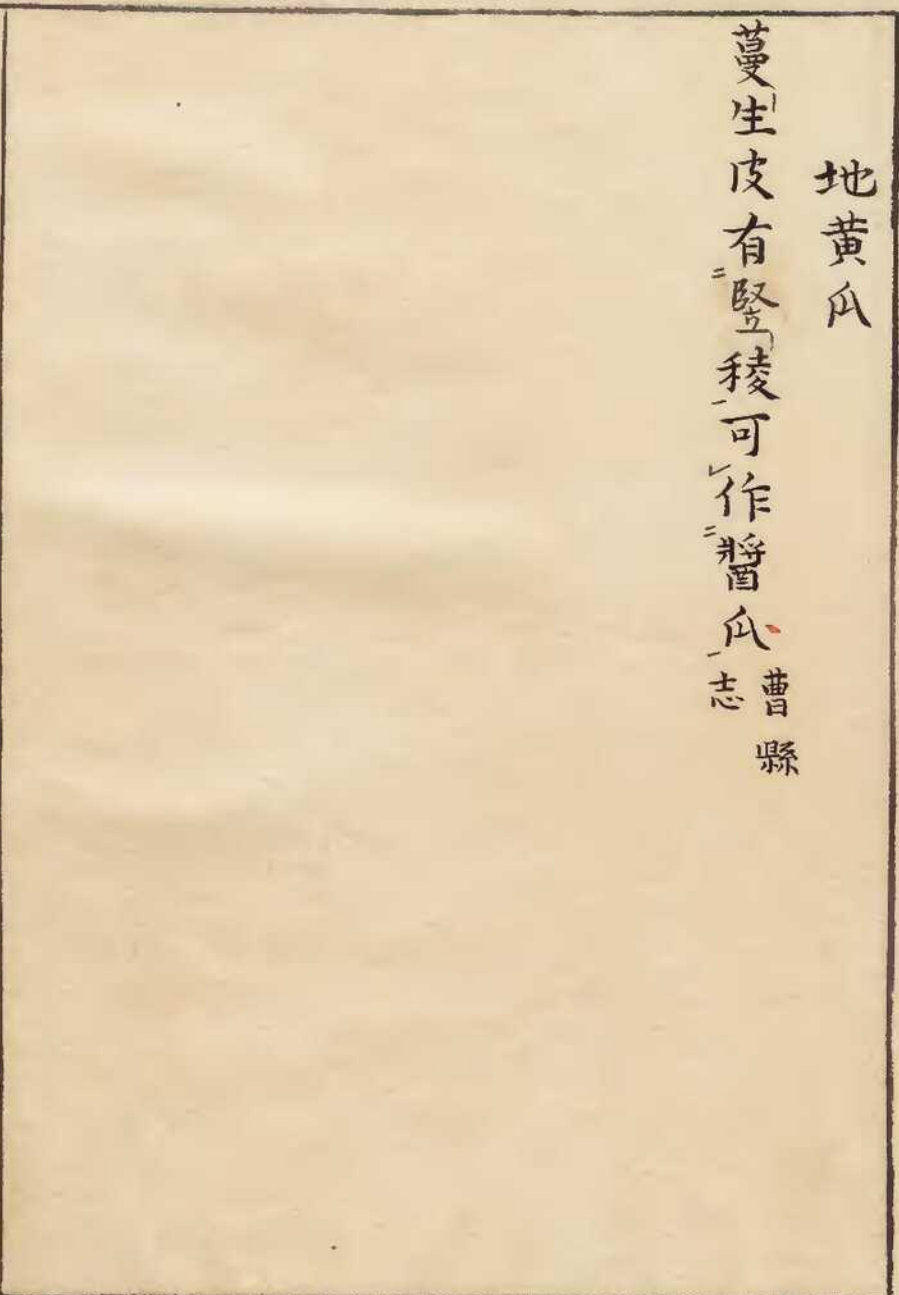 地黄瓜
蔓生皮有竪稜可作醬瓜曹縣志